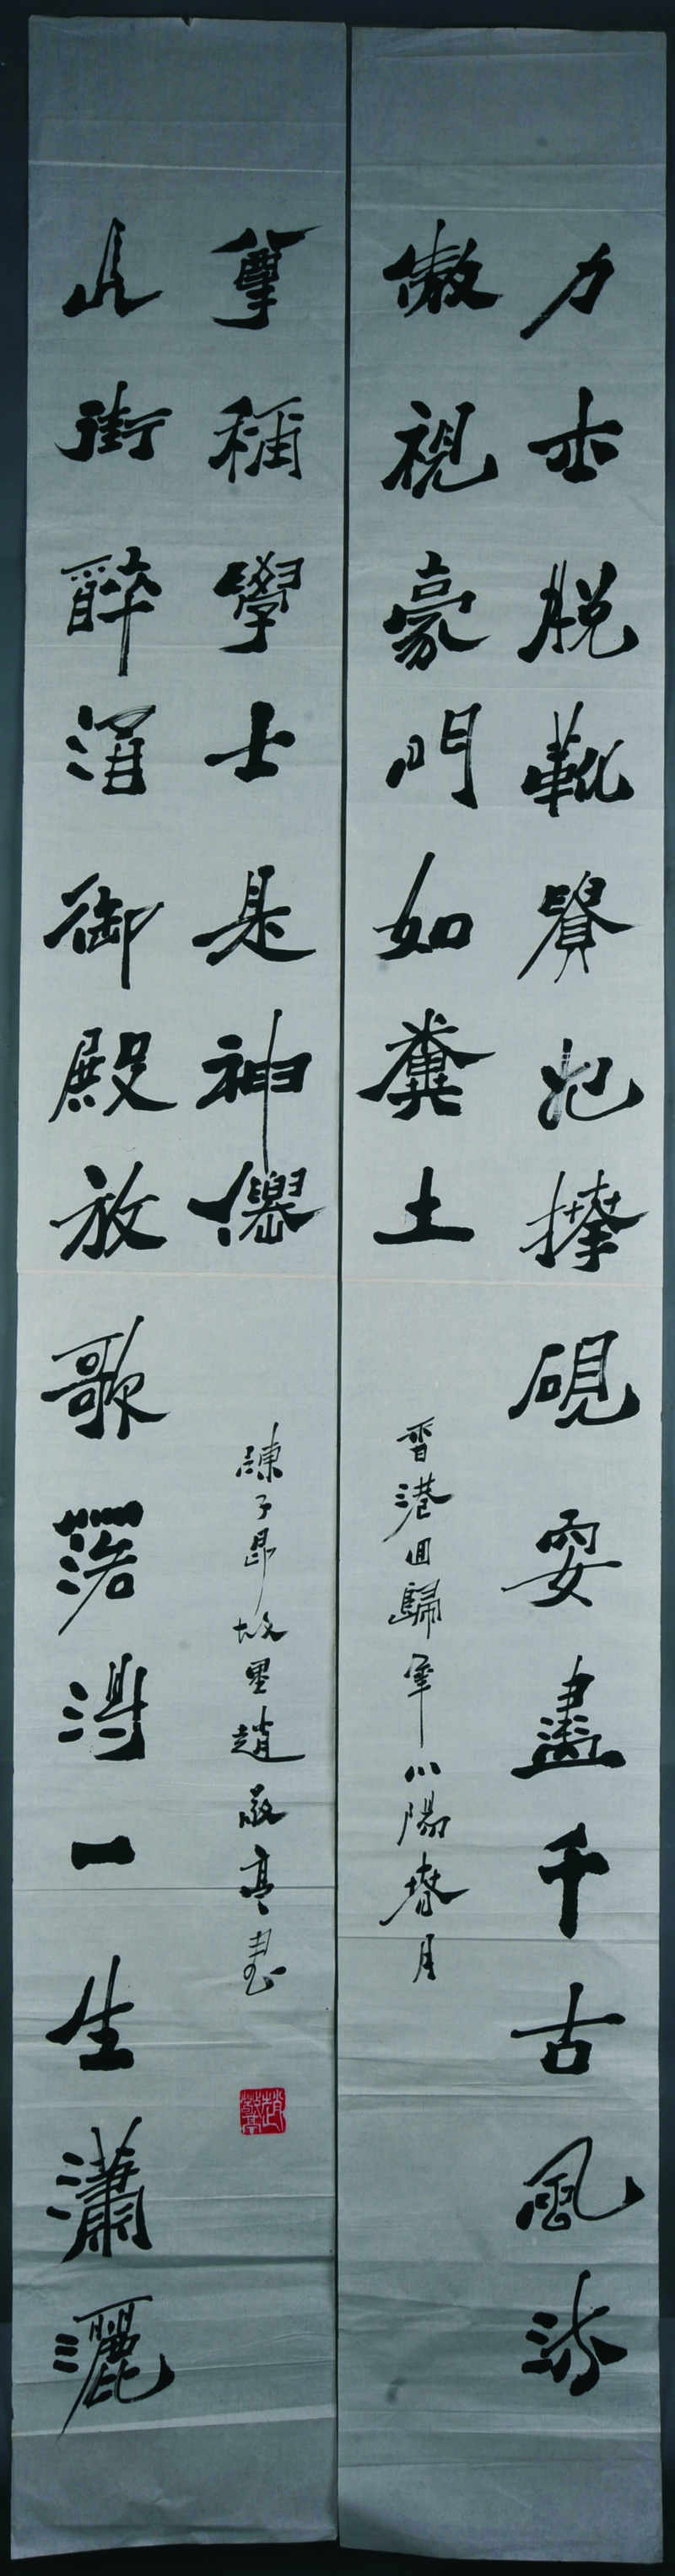 力士脱靴貴妃捧硯耍盡千古風流
傲視豪門如糞土
香港回歸年小陽春月
長街醉酒御殿放歌落得一生瀟灑
尊稱學士是神僊
陳子昂故里趙敬亭書
趙敬亭